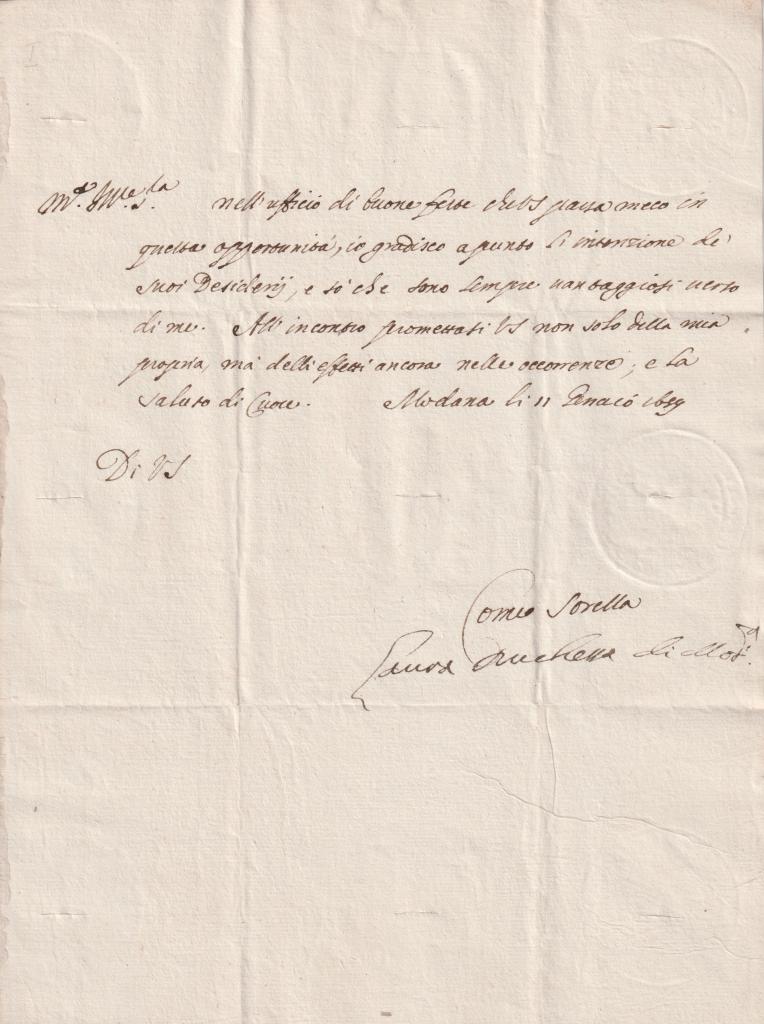 M.to Ill.e S.ra nell'ufficio di buone feste che VS passa meco in
questa opportunità, io gradisco apunto li intenzione de
suoi Desiderij, e sò che sono sempre uantaggiosi uerso
di me. All'incontro promettasi VS non solo della mia
propria, mà delli effetti ancora nelle occorrenze; e La
saluto di Cuore. Modana li 11 Genaió 1659
Di VS
Come Sorella
Laura Duchessa di Mod.a